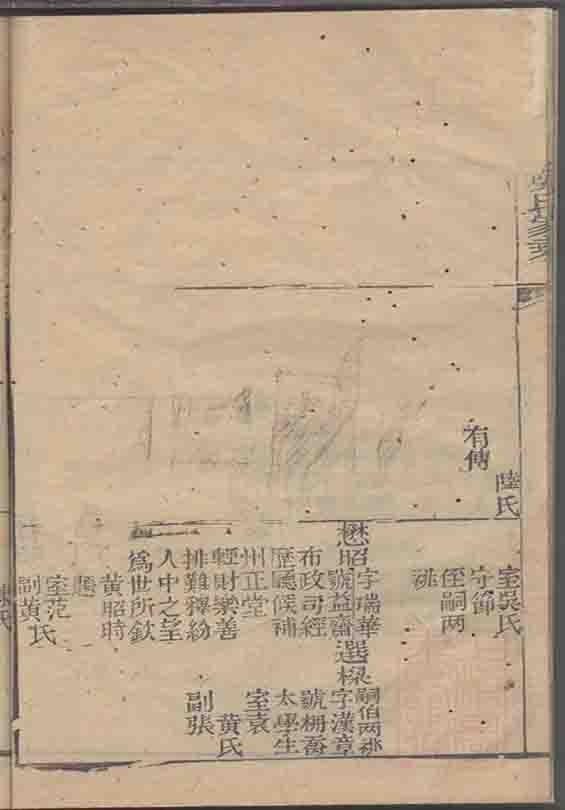 氏家乘
陸氏
有傳
室吳氏
守節
侄嗣兩
祧
懋昭
字瑞華
號益齋
布政司經
歷廳候補
州正堂
輕財樂善
排難釋紛
人中之望
爲世所欽
黃昭時
題
室范氏
副黃氏
選樑
嗣伯兩祧
字漢章
號楠喬
太學生
室袁
黃氏
副張
氏